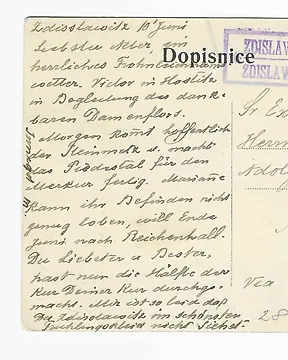 Zdisslawitz 10 Juni
Liebster Alter, ein
herrliches Frohnleichnams
wetter. Victor in Hostitz
in Begleitung des dank-
baren Damenflors.
Morgen kommt hoffentlich
der Steinmetz u. macht
das Piedestal für den
Merkur fertig. Mariane
kann ihr Befinden nicht
genug loben, will Ende
Juni nach Reichenhall.
Du Liebster u. Bester,
hast nun die Hälfte der
Kur Deiner Kur durchge-
macht. Mir ist so leid daß
Du Zdisslawitz im schönsten
Frühlingskleid nicht siehst.
Dopisnice
ZDISLAV
ZDISLAV
Sr Ex
Herrn
Adol
Via
28